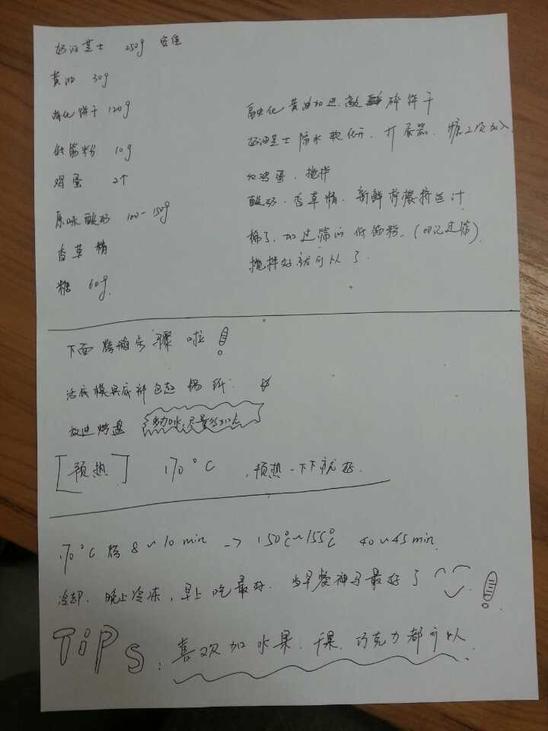 奶油芝士 250g 室温
黄油 30g
消化饼干 120g
低筋粉 10g
鸡蛋 2个
原味酸奶 100-150g
香草精
糖 60g
融化黄油加进 碎饼干
奶油芝士 隔水软化 打蛋器 糖 加入
鸡蛋,搅拌
酸奶,香草精,新鲜 汁
加过筛的低筋粉,(切记过筛)
搅拌好就可以了.
下面 步骤啦!
活底模具底部包起锡纸
放进烤盘
[预热] 170℃,预热一下下就好.
170℃ 8~10min → 150℃~155℃ 40~45min.
冷却.晚上冷冻,早上吃最好.当早餐神马最好了
TiPs:喜欢加水果,干果,巧克力都可以